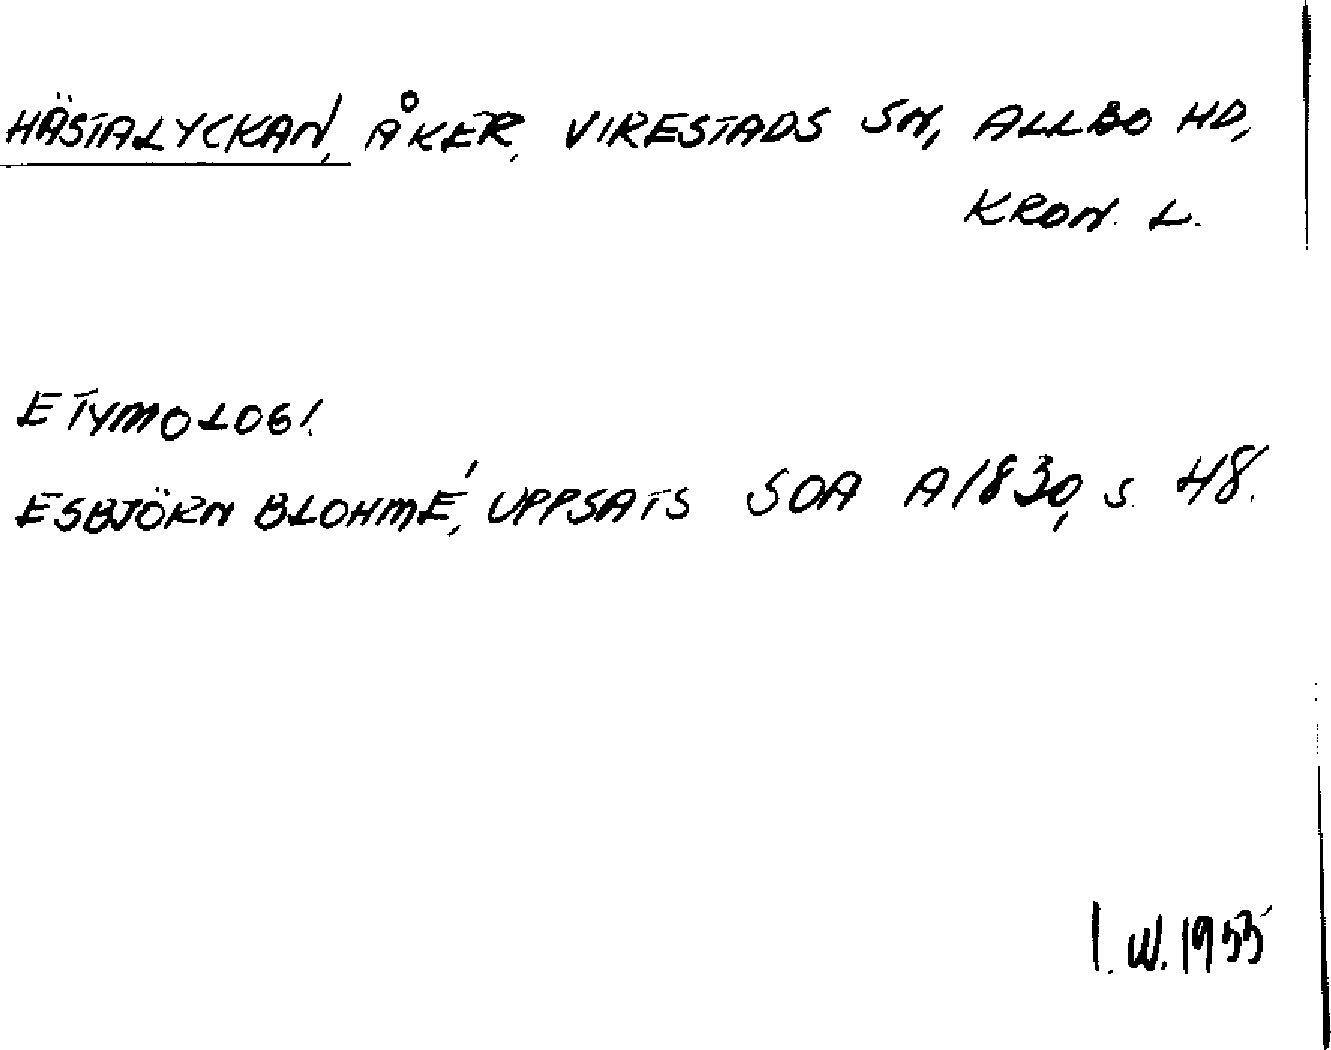 HÄSTALYCKAN, ÅKER, VIRESTADS SN, ALLBO HD,
KRON. L.
ETYMOLOGI.
ESBJÖRN BLOHMÉ, UPPSATS SOA A1830, S. 48.
I. W. 1955